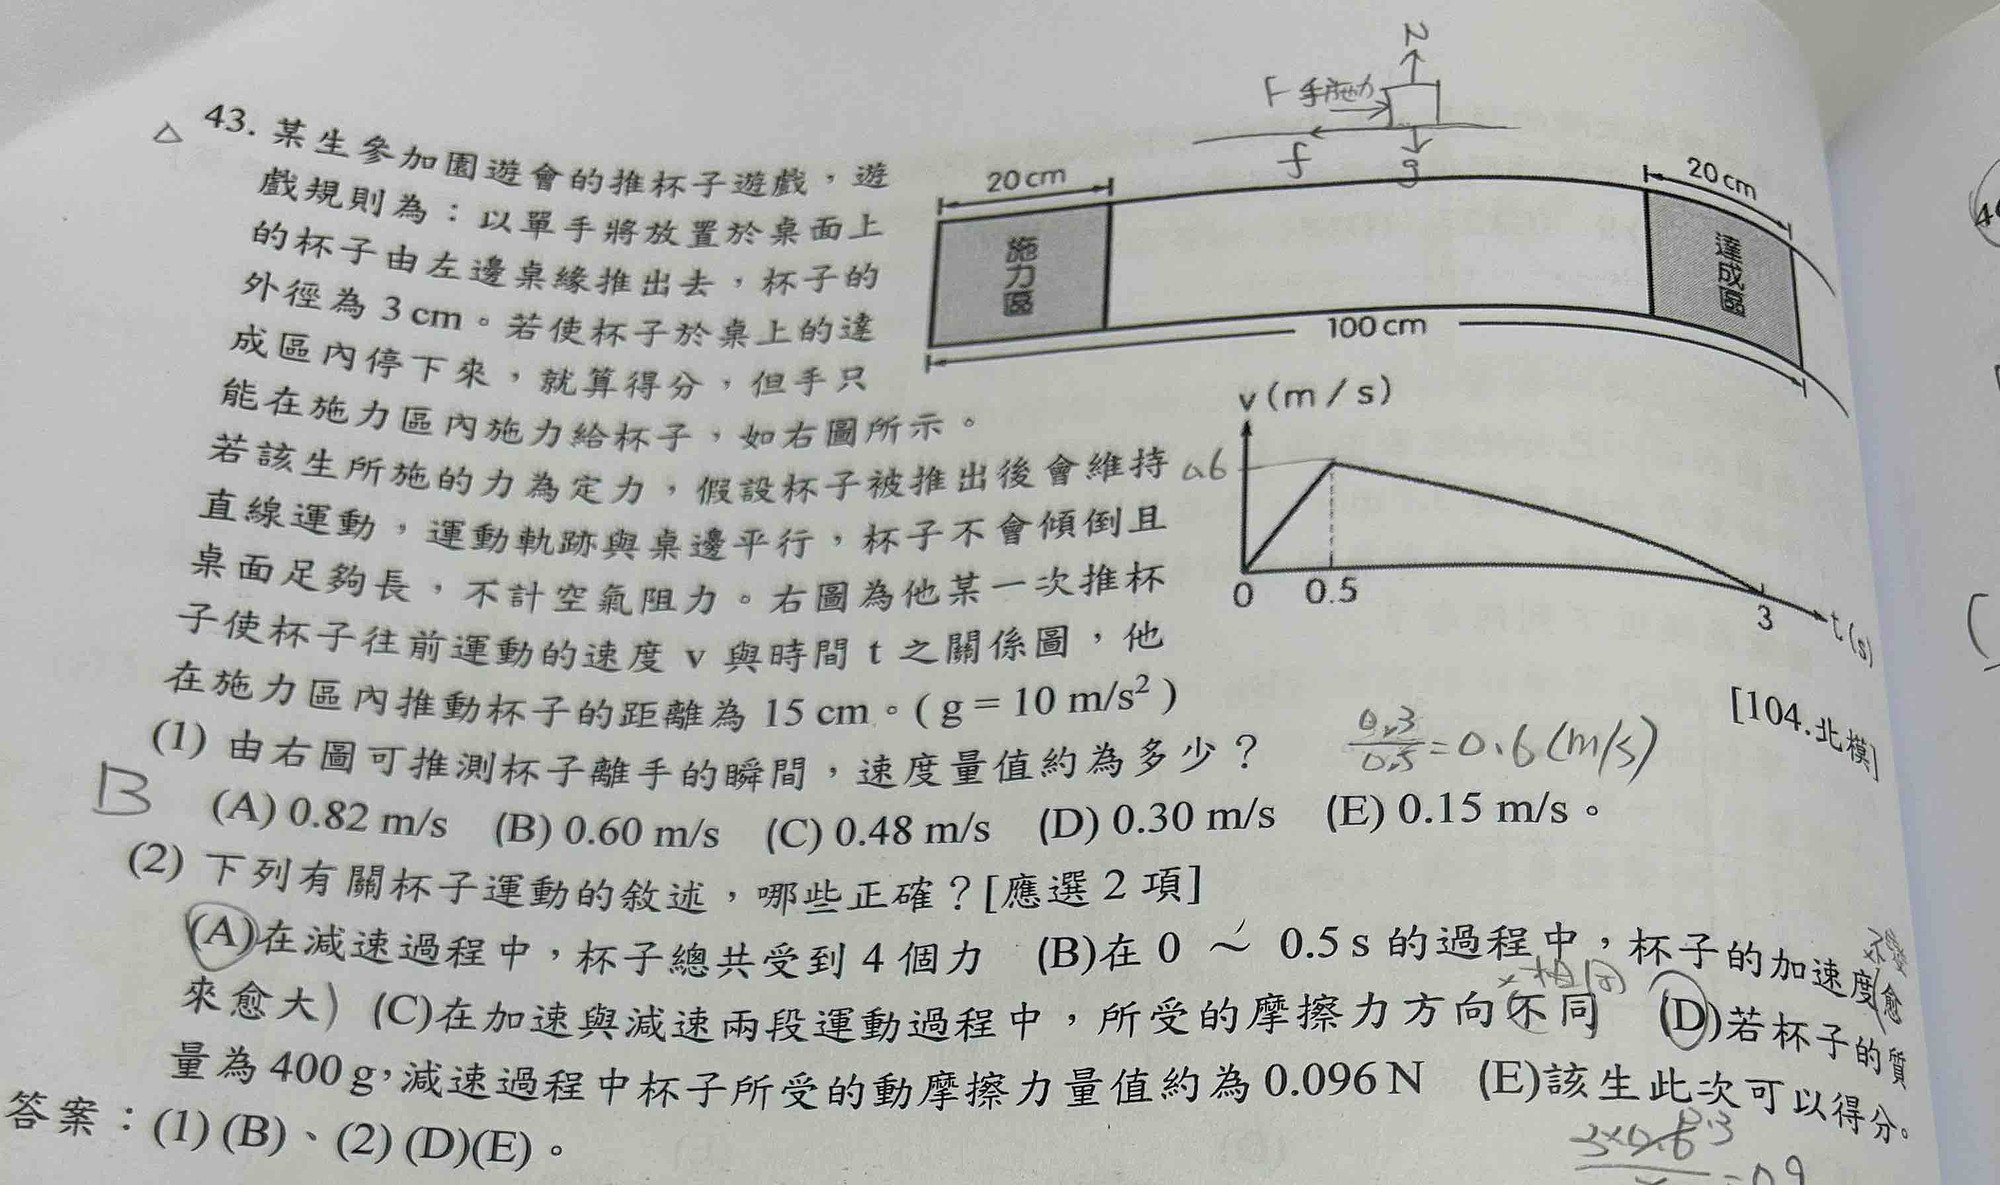 N
F 手施力
f
g
43. 某生參加園遊會的推杯子遊戲，遊
戲規則為：以單手將放置於桌面上
的杯子由左邊桌緣推出去，杯子的
外徑為 3 cm。若使杯子於桌上的達
成區內停下來，就算得分，但手只
能在施力區內施力給杯子，如右圖所示。
若該生所施的力為定力，假設杯子被推出後會維持
直線運動，運動軌跡與桌邊平行，杯子不會傾倒且
桌面足夠長，不計空氣阻力。右圖為他某一次推杯
子使杯子往前運動的速度 v 與時間 t 之關係圖，他
在施力區內推動杯子的距離為 15 cm。( g = 10 m/s² )
20 cm
20 cm
施力區
達成區
100 cm
v (m / s)
0.6
0
0.5
3
t (s)
[104.北模]
(1) 由右圖可推測杯子離手的瞬間，速度量值約為多少？
0.3/0.5 = 0.6 (m/s)
B
(A) 0.82 m/s (B) 0.60 m/s (C) 0.48 m/s (D) 0.30 m/s (E) 0.15 m/s。
(2) 下列有關杯子運動的敘述，哪些正確？[應選 2 項]
(A)在減速過程中，杯子總共受到 4 個力 (B)在 0 ～ 0.5 s 的過程中，杯子的加速度愈
不變
來愈大 (C)在加速與減速兩段運動過程中，所受的摩擦力方向不同 (D)若杯子的質
x 相同
量為 400 g，減速過程中杯子所受的動摩擦力量值約為 0.096 N (E)該生此次可以得分。
答案：(1) (B)、(2) (D)(E)。